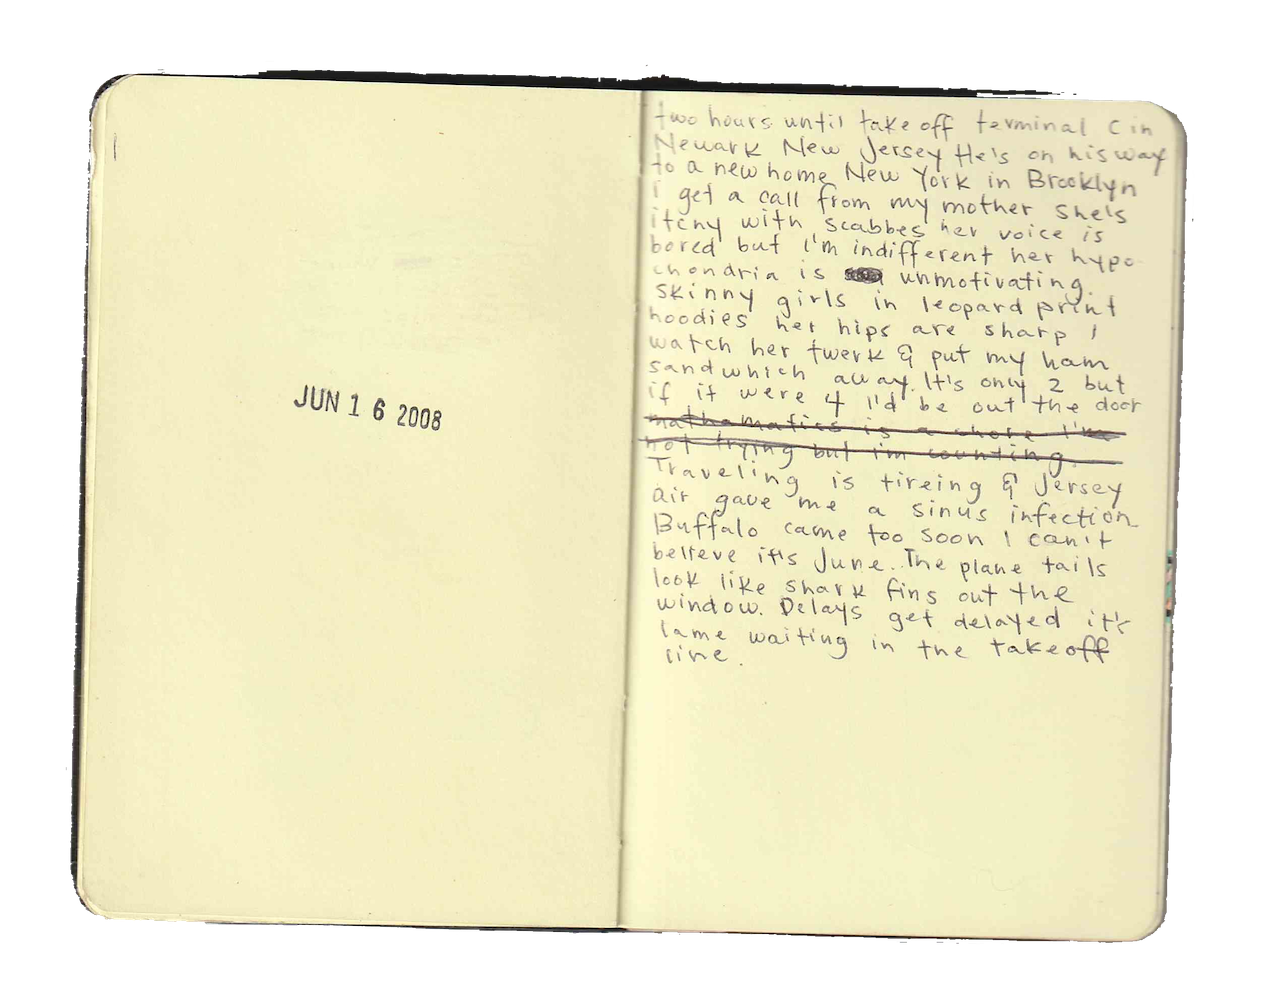 JUN 16 2008
two hours until take off terminal C in
Newark New Jersey He's on his way
to a new home New York in Brooklyn
I get a call from my mother She's
itchy with scabbes her voice is
bored but I'm indifferent her hypo
chondria is unmotivating.
skinny girls in leopard print
hoodies her hips are sharp I
watch her twerk & put my ham
sandwhich away. It's only 2 but
if it were 4 I'd be out the door
mathamatics is a chore I'm
not trying but i'm counting.
Traveling is tireing & Jersey
air gave me a sinus infection
Buffalo came too soon I can't
believe it's June. The plane tails
look like shark fins out the
window. Delays get delayed it's
lame waiting in the takeoff
line.